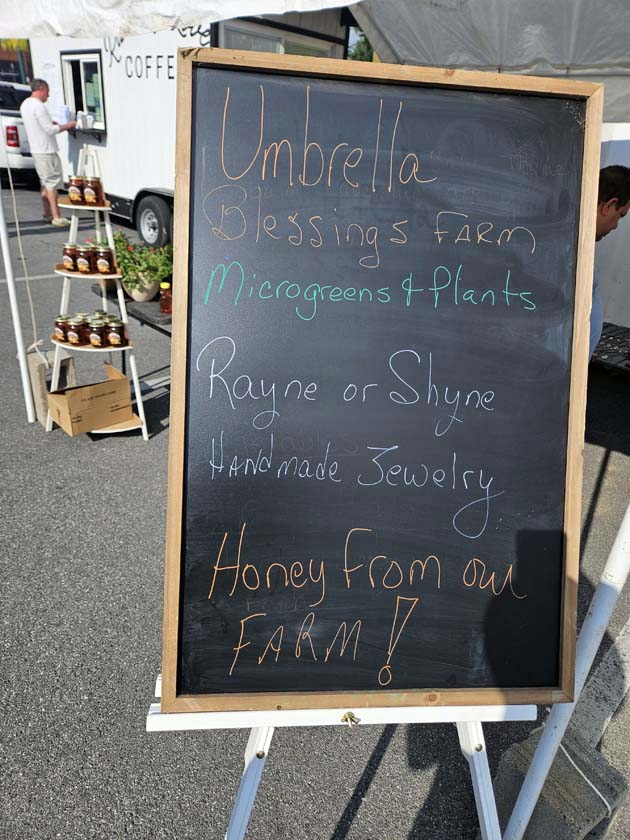 COFFE
Umbrella
Blessings FARM
Microgreens & Plants
Rayne or Shyne
Handmade Jewelry
Honey From our
FARM!